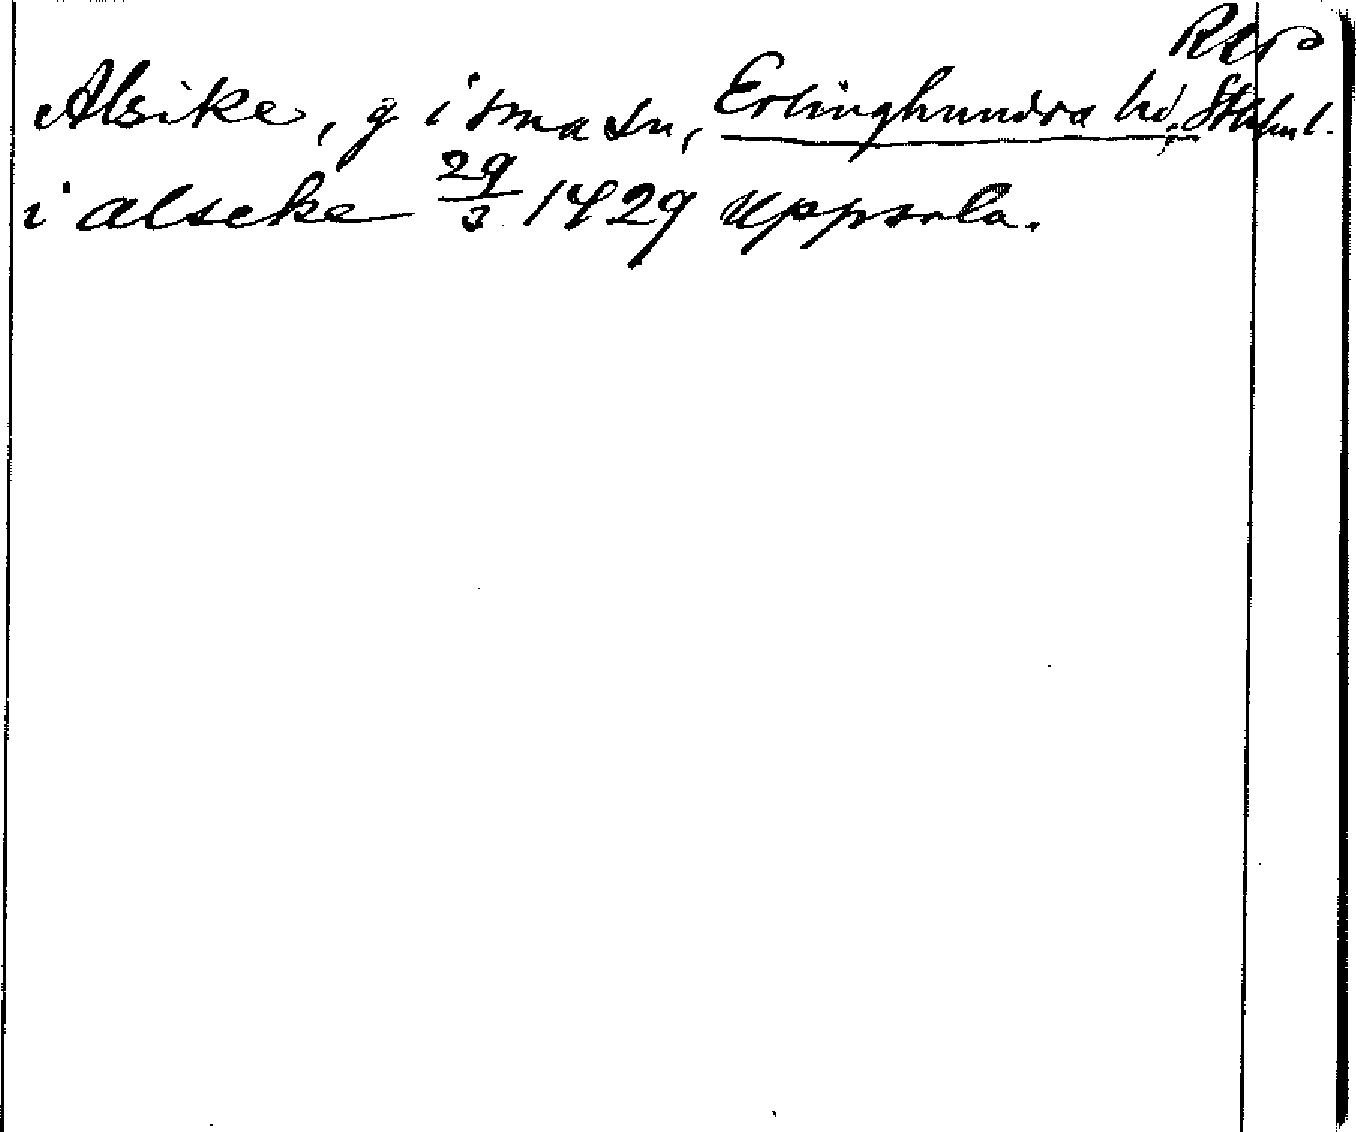 Rep
Alsike, g i sma sn, Erlinghundra hd, Sthlm l.
i alseke 29/3 1429 Uppsala.